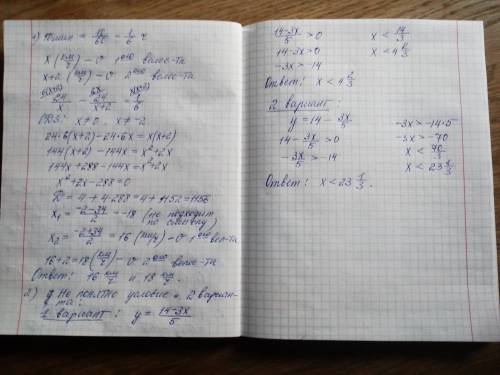 1) 10 мин = 10/60 = 1/6 ч
x (км/ч) – v 1ого велос-та
x+2 (км/ч) – v 2ого велос-та
24/x – 24/x+2 = 1/6
ОДЗ: x ≠ 0, x ≠ -2
24·6(x+2) - 24·6x = x(x+2)
144(x+2) - 144x = x²+2x
144x + 288 - 144x = x²+2x
x²+2x-288=0
D = 4+4·288 = 4+1152=1156
x₁ = -2-34/2 = -18 (не подходит по смыслу)
x₂ = -2+34/2 = 16 (км/ч) – v 1ого вел-та
16+2=18 (км/ч) – v 2ого велос-та
Ответ: 16 км/ч и 18 км/ч.
2) Не понятно условие. 2 вариан-
та:
1 вариант: y = 14-3x/5
14-3x/5 > 0
14-3x>0
-3x > -14
x < 14/3
x < 4 2/3
Ответ: x < 4 2/3
2 вариант:
y = 14 - 3x/5
14 - 3x/5 > 0
-3x/5 > -14
-3x > -14·5
-3x > -70
x < 70/3
x < 23 1/3
Ответ: x < 23 1/3.